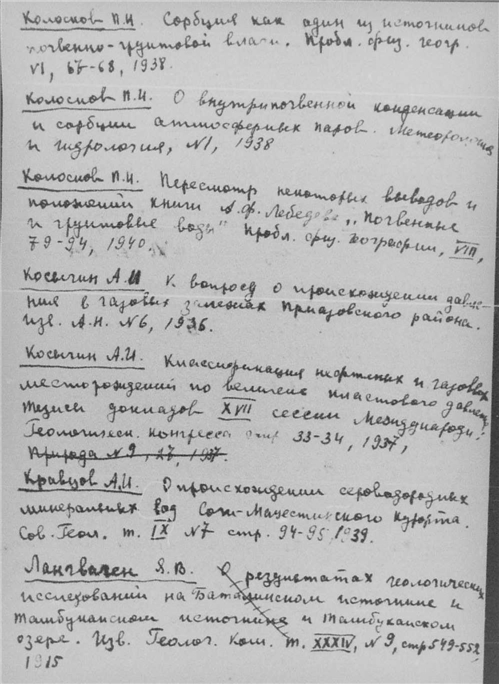 Колосков П.И. Сорбция как один из источников
почвенно-грунтовой влаги. Пробл. физ. геогр.
VI, 67-68, 1938.
Колосков П.И. О внутрипочвенной конденсации
и сорбции атмосферных паров. Метеорология
и гидрология, N1, 1938
Колосков П.И. Пересмотр некоторых выводов и
положений книги А.Ф. Лебедева „Почвенные
и грунтовые воды" Пробл. физ. географии, VIII,
79-94, 1940.
Косыгин А.И К вопросу о происхождении давле-
ния в газовых залежах Приазовского района.
Изв. А.Н. N6, 1936.
Косыгин А.И. Классификация нефтяных и газовых
месторождений по величине пластового давлен.
Тезисы докладов XVII сессии Международн.
Геологическ. конгресса стр 33-34, 1937,
Природа N9, 27, 1937.
Кравцов А.И. О происхождении сероводородных
минеральных вод Сочи-Мацестинского курорта.
Сов. Геол. т. IX N7 стр. 94-95, 1939.
Лангваген Я.В. О результатах геологических
исследований на Баталинском источнике и
Тамбуканском источнике и Тамбуканском
озере. Изв. Геолог. Ком. т. XXXIV, N9, стр 549-552
1915